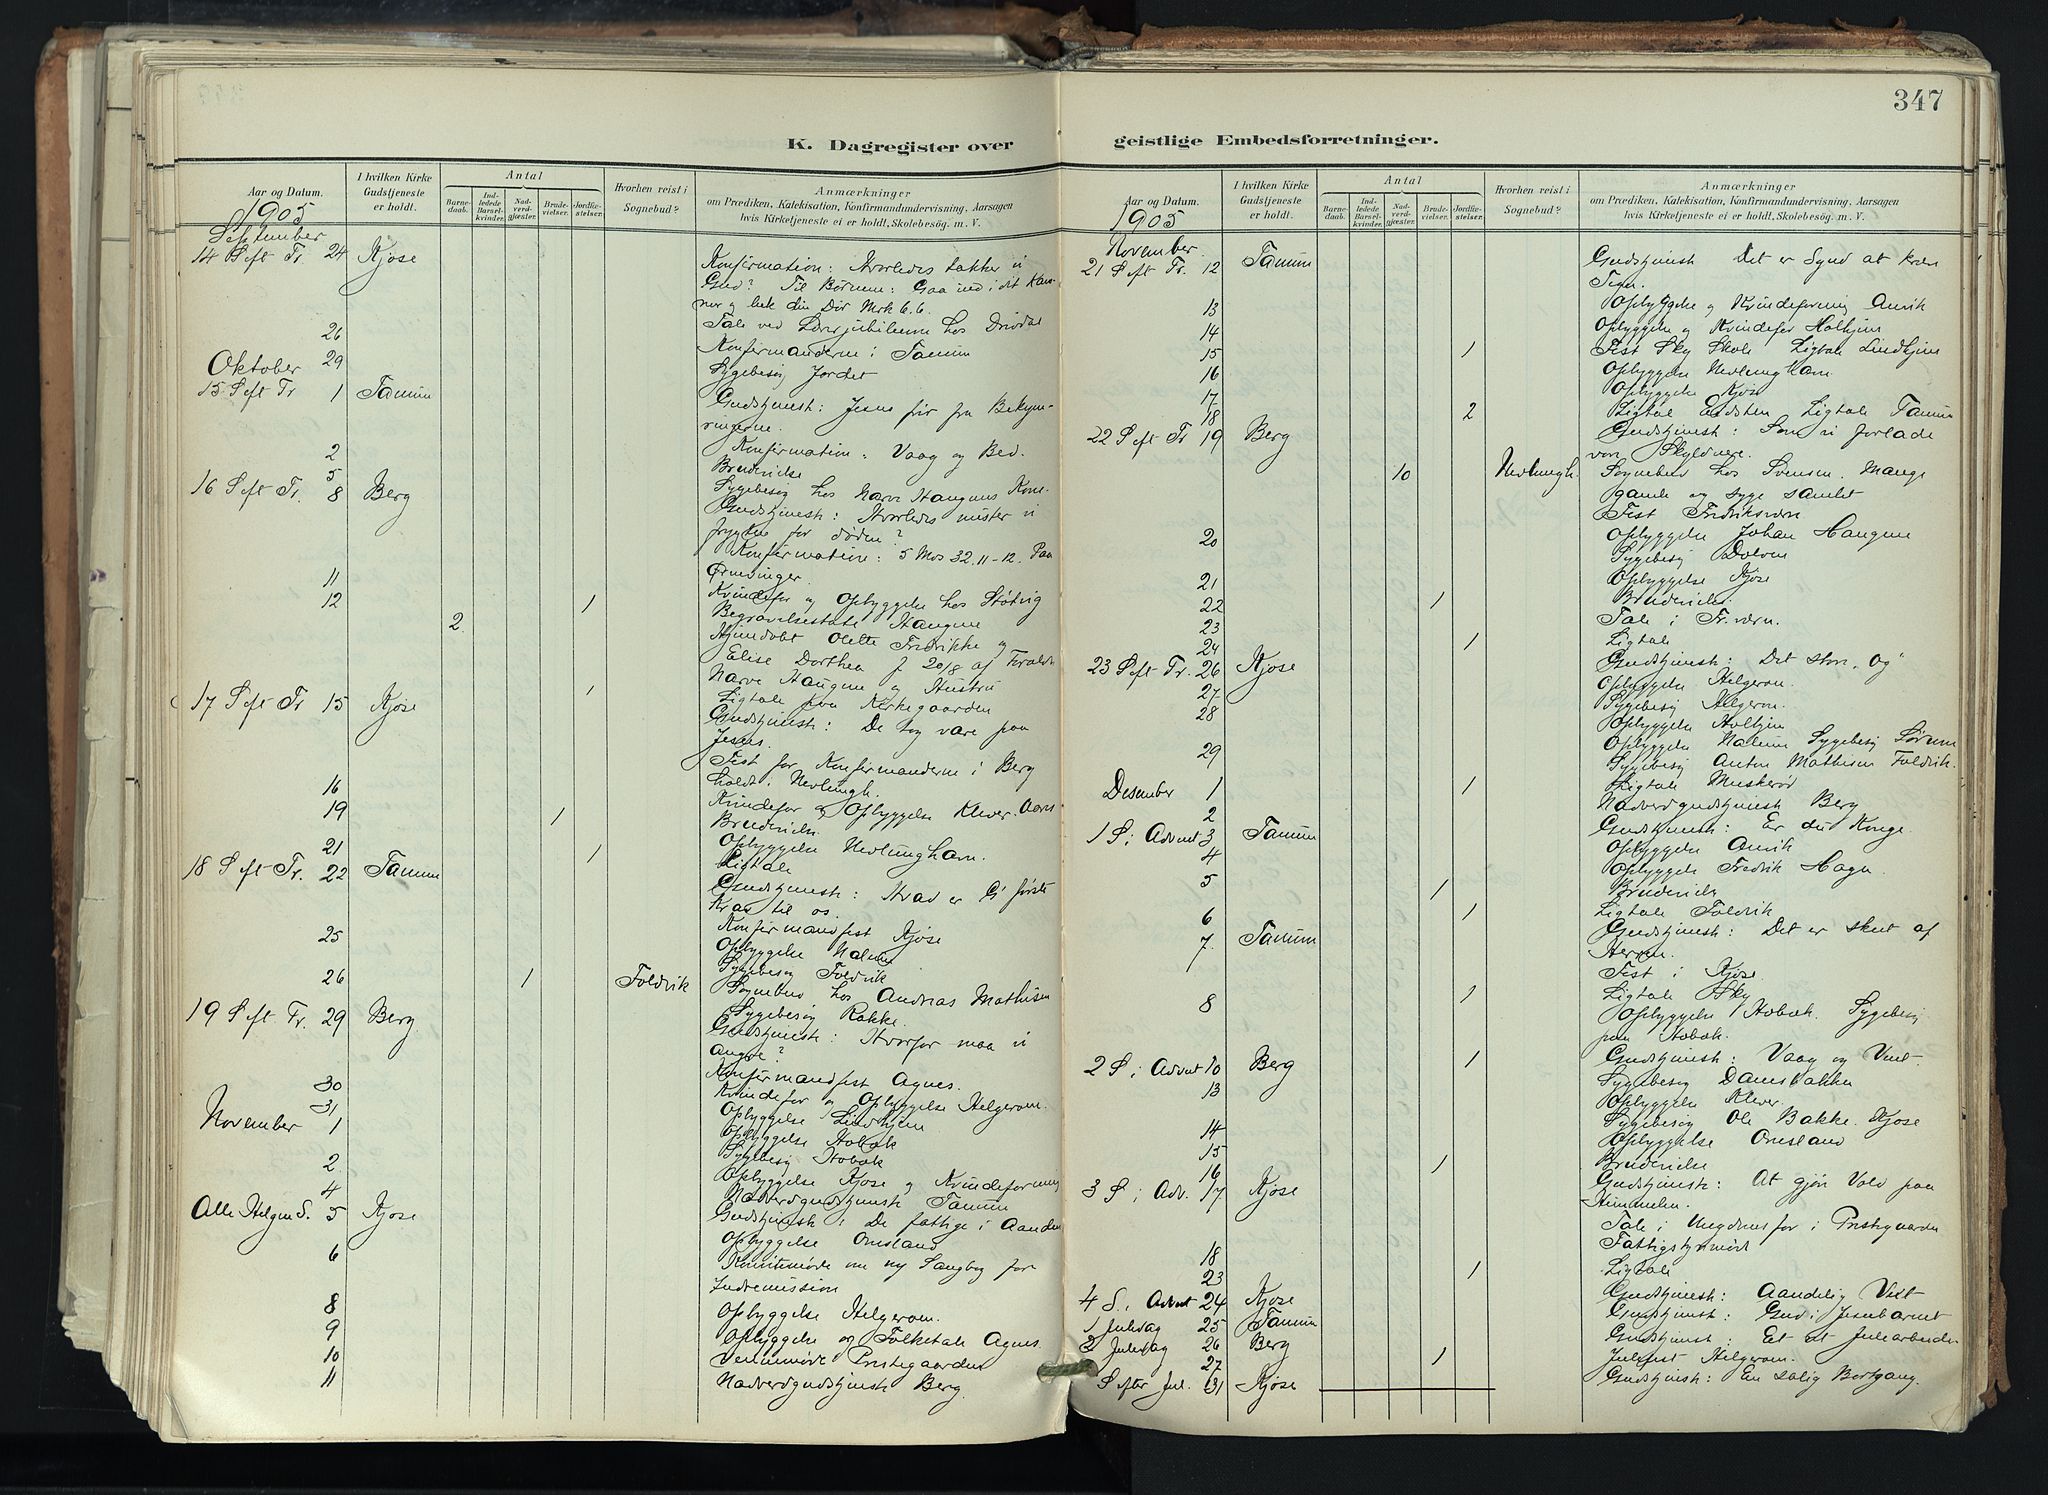 347
K. Dagregister over
geistlige Embedsforretninger.
Aar og Datum.
I hvilken Kirke Gudstjeneste er holdt.
Antal
Barnedaab.
Indledede Barselkvinder.
Nadverdgjæster.
Brudevielser.
Jordfæstelser.
Hvorhen reist i Sognebud?
Anmærkninger
om Prædiken, Katekisation, Konfirmandundervisning, Aarsagen
hvis Kirketjeneste ei er holdt, Skolebesøg. m. V.
1905
September
14 S eft Tr. 24 Kjose Konfirmation: Hvorledes takker vi
Gud? Til Børnene: Gaa ind i dit Kam-
mer og luk din Dør Mrk 6.6.
26 Tale ved Lærerjubilæum hos
29 Konfirmanderne i Tanum
Oktober
Sygebesøg Jordet
15 S eft Tr 1 Tanum Gudstjenest: Jesus frir fra Bekym-
ringerne.
2 Konfirmation: Vaag og Bed.
5 Brudevielse
Sygebesøg hos Narve Haugenes Kone
16 S eft Tr. 8 Berg Gudstjenest: Hvorledes mister vi
frygten for døden?
Konfirmation: 5 Mos 32.11-12. Paa
Ørnevinger.
11 Kvindefor og Opbyggelse hos Støtvig
12 1 Begravelsestale Haugene
2 Hjemdøbt Olette Fredrikke og
Elise Dorthea f 20/8 af Foræld
Narve Haugene og Hustru
1 Ligtale paa Kirkegaarden
17 S eft Tr 15 Kjose Gudstjenest: De tog vare paa
Jesus.
Fest for Konfirmanderne i Berg
holdt i Nevlungh.
16 Kvindefor og Opbyggelse Klever.
19 1 Brudevielse.
21 Opbyggelse Nevlunghavn.
1 Ligtale
18 S eft Tr. 22 Tanum Gudstjenest: Hvad er G's første
Krav til os.
Konfirmandfest Kjose
25 Opbyggelse Nalum
Sygebesøg Foldvik
26 1 Foldvik Sognebud hos Andreas Mathisen
Sygebesøg Rakke.
19 S eft Tr. 29 Berg Gudstjenest: Hvorfor maa vi
angre?
Konfirmandfest Agnes.
30 Kvindefor og Opbyggelse Helgeroen.
31 Opbyggelse Lindhjem
November 1 Opbyggelse Hobæk
Sygebesøg Hobæk
2 Opbyggelse Kjose og Kvindeforening
4 Nadverdgudstjenest Tanum
Alle Helgen S. 5 Kjose Gudstjenest: De fattige i Aanden
Opbyggelse Omsland
6 Komitemøde om ny Sangbog for
Indremission
8 Opbyggelse Helgeroen.
9 Opbyggelse og Folketale Agnes.
10 Vennemøde Prestegaarden
11 Nadverdgudstjenest Berg.
Aar og Datum.
I hvilken Kirke Gudstjeneste er holdt.
Antal
Barnedaab.
Indledede Barselkvinder.
Nadverdgjæster.
Brudevielser.
Jordfæstelser.
Hvorhen reist i Sognebud?
Anmærkninger
om Prædiken, Katekisation, Konfirmandundervisning, Aarsagen
hvis Kirketjeneste ei er holdt, Skolebesøg. m. V.
1905
November
21 S eft Tr. 12 Tanum Gudstjenest Det er Synd at kræve
Tegn.
13 Opbyggelse og Kvindeforening Anvik
14 Opbyggelse og Kvindefor Holhjem
15 1 Fest Sky Skole Ligtale Lindhjem
16 Opbyggelse Nevlunghavn
17 Opbyggelse Kjose
18 2 Ligtale Ligtale Tanum
22 S eft Tr 19 Berg Gudstjenest: Som vi forlade
vore Skyldnere.
10 Nevlungh. Sognebud hos Svensen. Mange
gamle og syge samlet
Fest Fredriksværn
20 Opbyggelse Johan Haugene
Sygebesøg Dolven
21 Opbyggelse Kjose
22 1 Brudevielse.
23 Tale i Fr.værn.
24 1 Ligtale
23 S eft Tr. 26 Kjose Gudstjenest: Det store „Og"
27 Opbyggelse Helgeroen.
Sygebesøg Helgeroen.
28 Opbyggelse Holhjem
Opbyggelse Nalum Sygebesøg Sørum
29 Sygebesøg Anton Mathisen Foldvik.
Desember 1 1 Ligtale Muskerød
2 Nadverdgudstjenest Berg
1 S i Advent 3 Tanum Gudstjenest: Er du Konge.
4 Opbyggelse Anvik
5 Opbyggelse Fredrik Hagen.
1 Brudevielse
6 1 Ligtale Foldvik
7. Tanum Gudstjenest: Det er sket af
Herren.
Fest i Kjose.
1 Ligtale Sky
8 Opbyggelse Hobæk. Sygebesøg
paa Hobæk.
2 S i Advent 10 Berg 1 Gudstjenest: Vaag og Vent-
Sygebesøg Damsbakken
13 Opbyggelse Klever.
Sygebesøg Ole Bakke. Kjose
14 Opbyggelse Omsland
15
16 1 Brudevielse
3 S i Adv. 17 Kjose Gudstjenest: At gjøre Vold paa
Himmelen.
Tale i Ungdomsfor i Prestegaarden
18 Fattigstyremøde
23 1 Ligtale
4 S. i Advent 24 Kjose Gudstjenest: Aandelig Vext
1 Juledag 25 Tanum Gudstjenest: Gud i Jesubarnet
2 Juledag 26 Berg Gudstjenest: Et Julearbeide
27 1 Julefest Helgeroen.
S efter Jul. 31 Kjose Gudstjenest: En salig Bortgang.